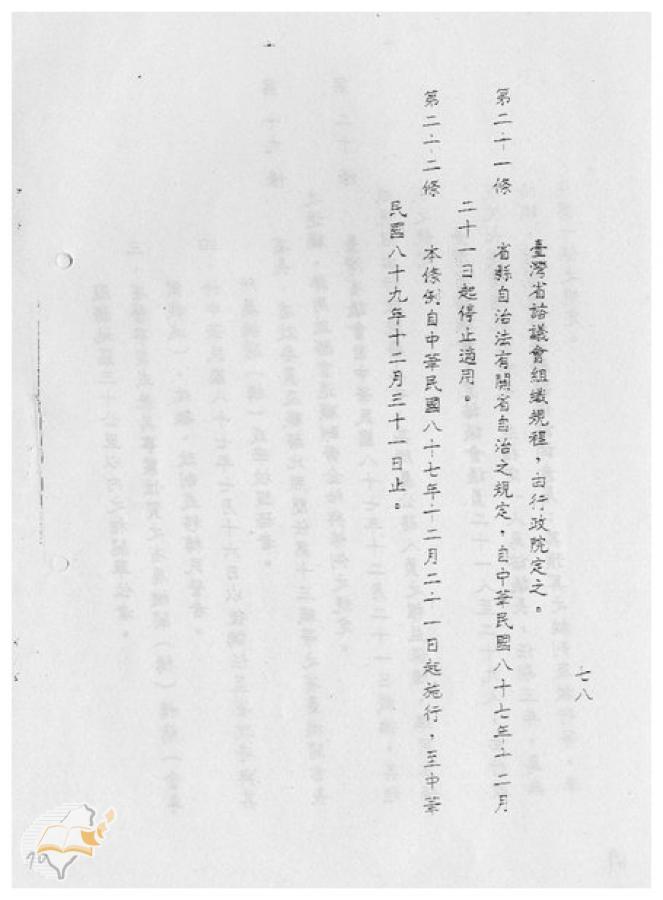 臺灣省諮議會組織規程，由行政院定之。
第二十一條　省縣自治法有關省自治之規定，自中華民國八十七年十二月
二十一日起停止適用。
第二十二條　本條例自中華民國八十七年十二月二十一日起施行，至中華
民國八十九年十二月三十一日止。
七八